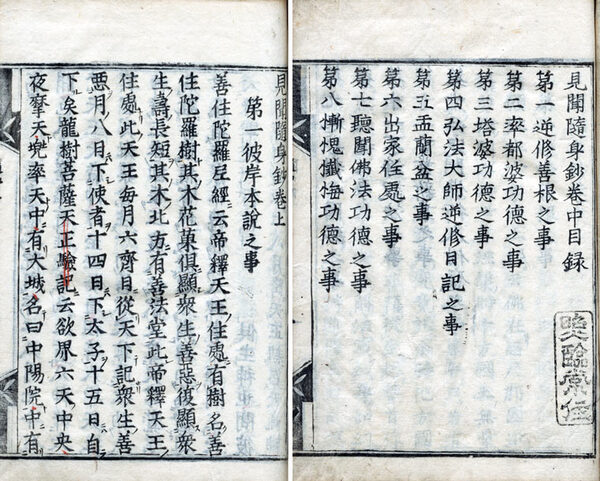 見聞隨身鈔卷中目録
第一逆修善根之事
第二率都婆功德之事
第三塔婆功德之事
第四弘法大師逆修日記之事
第五盂蘭盆之事
第六出家住處之事
第七聽聞佛法功德之事
第八慚愧懺悔功德之事
見聞隨身鈔卷上
第一彼岸本說之事
善住陀羅尼經云帝釋天王住處有樹名善
住陀羅樹其木花菓俱顯衆生善惡復顯衆
生壽長短其木北方有善法堂此帝釋天王
住處此天王每月六齊日從天下記衆生善
惡月八日下使者十四日下太子十五日自
下矣龍樹菩薩天正驗記云欲界六天中央
夜摩天兜率天中有大城名曰中陽院中有